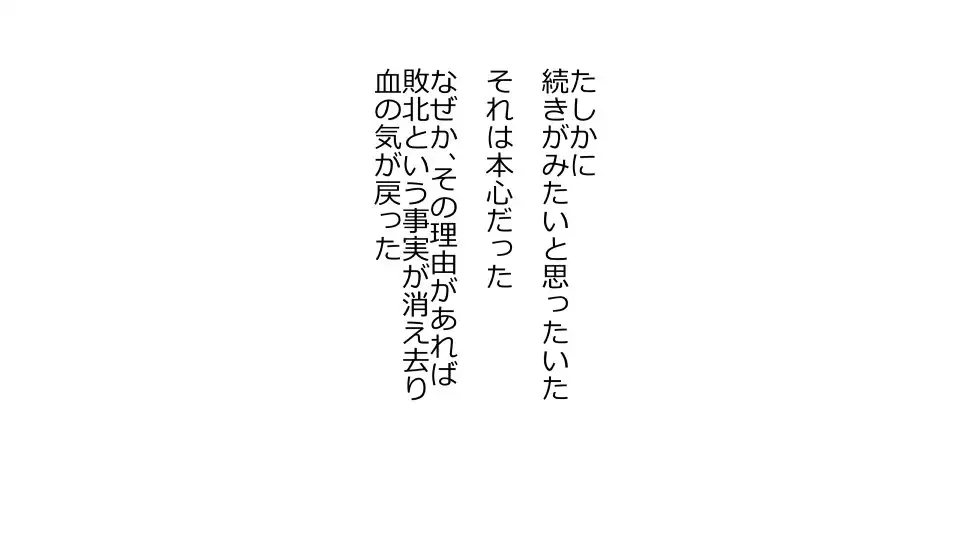 たしかに
続きがみたいと思ったいた
それは本心だった
なぜか、その理由があれば
敗北という事実が消え去り
血の気が戻った